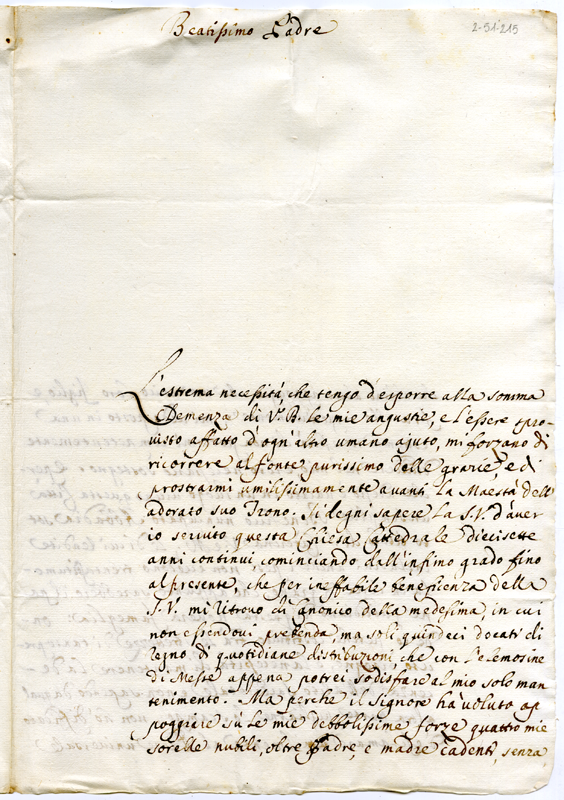 Beatissimo Padre
2-51-215
L'estrema necessità, che tengo d'esporre alla somma
Clemenza di V. B. le mie angustie, e l'essere spro-
visto affatto d'ogn'altro umano ajuto, mi forzano di
ricorrere al fonte purissimo delle grazie, e di
prostrarmi umilissimamente avanti la Maestà dell'
adorato suo Trono. Si degni sapere la S.V. d'aver
io servito questa Chiesa Cattedrale diecisette
anni continui, cominciando dall'infimo grado fino
al presente, che per ineffabile beneficenza della
S.V. mi ritrovo Canonico della medesima, in cui
non essendovi prebenda, ma soli quindeci docati di
regno di quotidiane distribuzioni, che con l'elemosine
di Messe appena potrei sodisfare al mio solo man
tenimento. Ma perche il Signore hà voluto ap
poggiare sù le mie debbolissime forze quattro mie
sorelle nubili, oltre Padre, e madre cadenti, senza